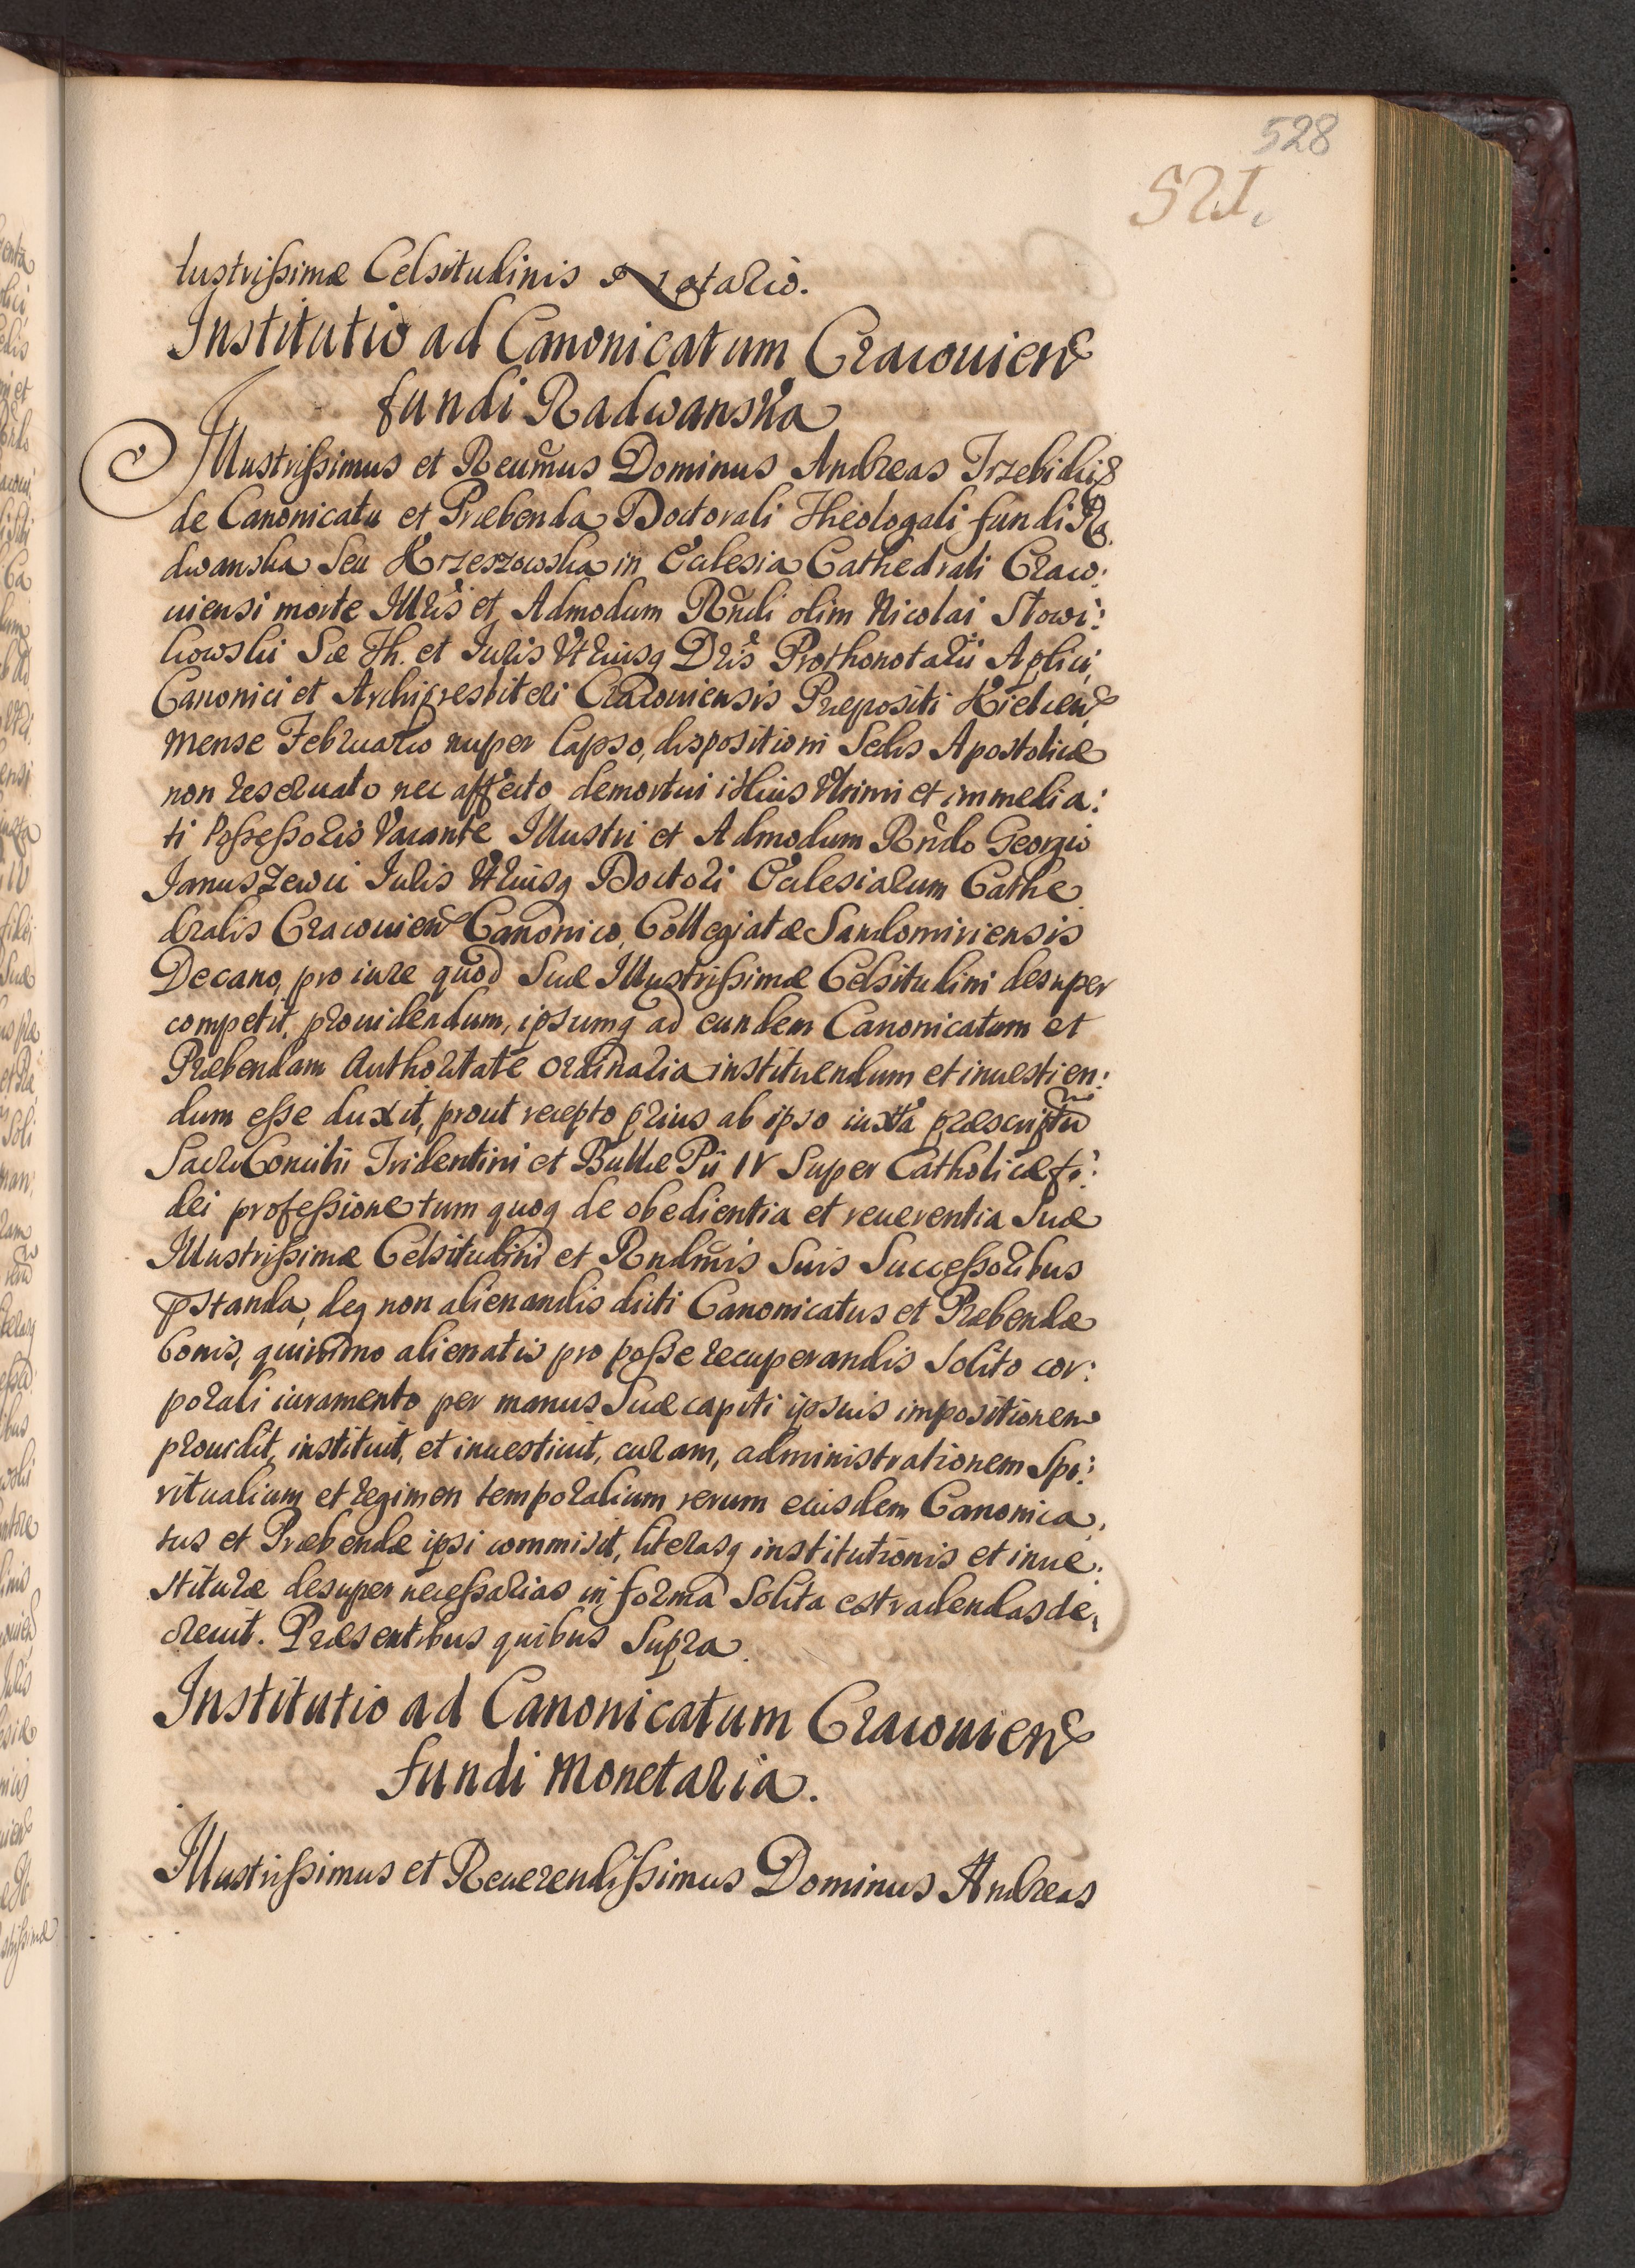 528
521.
lustrissimæ Celsitudinis Notario.
Institutio ad Canonicatum Cracouien
fundi Radwanska
Illustrissimus et Reumus Dominus Andreas Trzebicki
de Canonicatu et Præbenda Doctorali Theologali fundi Ra
dwanska Seu Krzeszowska in Ecclesia Cathedrali Craco:
uiensi morte Illris et Admodum Rndi olim Nicolai Słowi:
kowski Sæ Th. et Iuris Vtriusq Dris Prothonotarii Aplici,
Canonici et Archipresbiteri Cracouiensis Præpositi Kielcen
mense Februario nuper lapso, dispositioni Sedis Apostolicæ
non reseruato nec affecto demortui illius Vltimi et immedia:
ti Possessoris Vacante Illustri et Admodum Rndo Georgio
Januszewic Iuris Vtriusq Doctori Ecclesiarum Cathe
dralis Cracouien Canonico, Collegiatæ Sandomiriensis
Decano, pro iure quod Suæ Illustrissimæ Celsitudini desuper
competit, prouidendum, ipsumq ad eundem Canonicatum et
Præbendam Authoritate ordinaria instituendum et inuestien:
dum esse duxit, prout recepto prius ab ipso iuxta præscriptu
Sacri Concilii Tridentini et Bullæ Pii IV Super Catholicæ fi:
dei professione tum quoq de obedientia et reuerentia Suæ
Illustrissimæ Celsitudini et Rndmis Suis Successoribus
pstanda, deq non alienandis dicti Canonicatus et Præbendæ
bonis, quinimo alienatis pro posse recuperandis Solito cor:
porali iuramento per manus Suæ capiti ipsius impositionem
prouidit, instituit, et inuestiuit, curam, administrationem Spi:
ritualium et regimen temporalium rerum eiusdem Canonica,
tus et Præbendæ ipsi commisit, literasq institutionis et inue:
stituræ desuper necessarias in forma Solita extradendas de,
creuit. Præsentibus quibus Supra.
Institutio ad Canonicatum Cracouien
fundi Monetaria.
Illustrissimus et Reuerendissimus Dominus Andreas